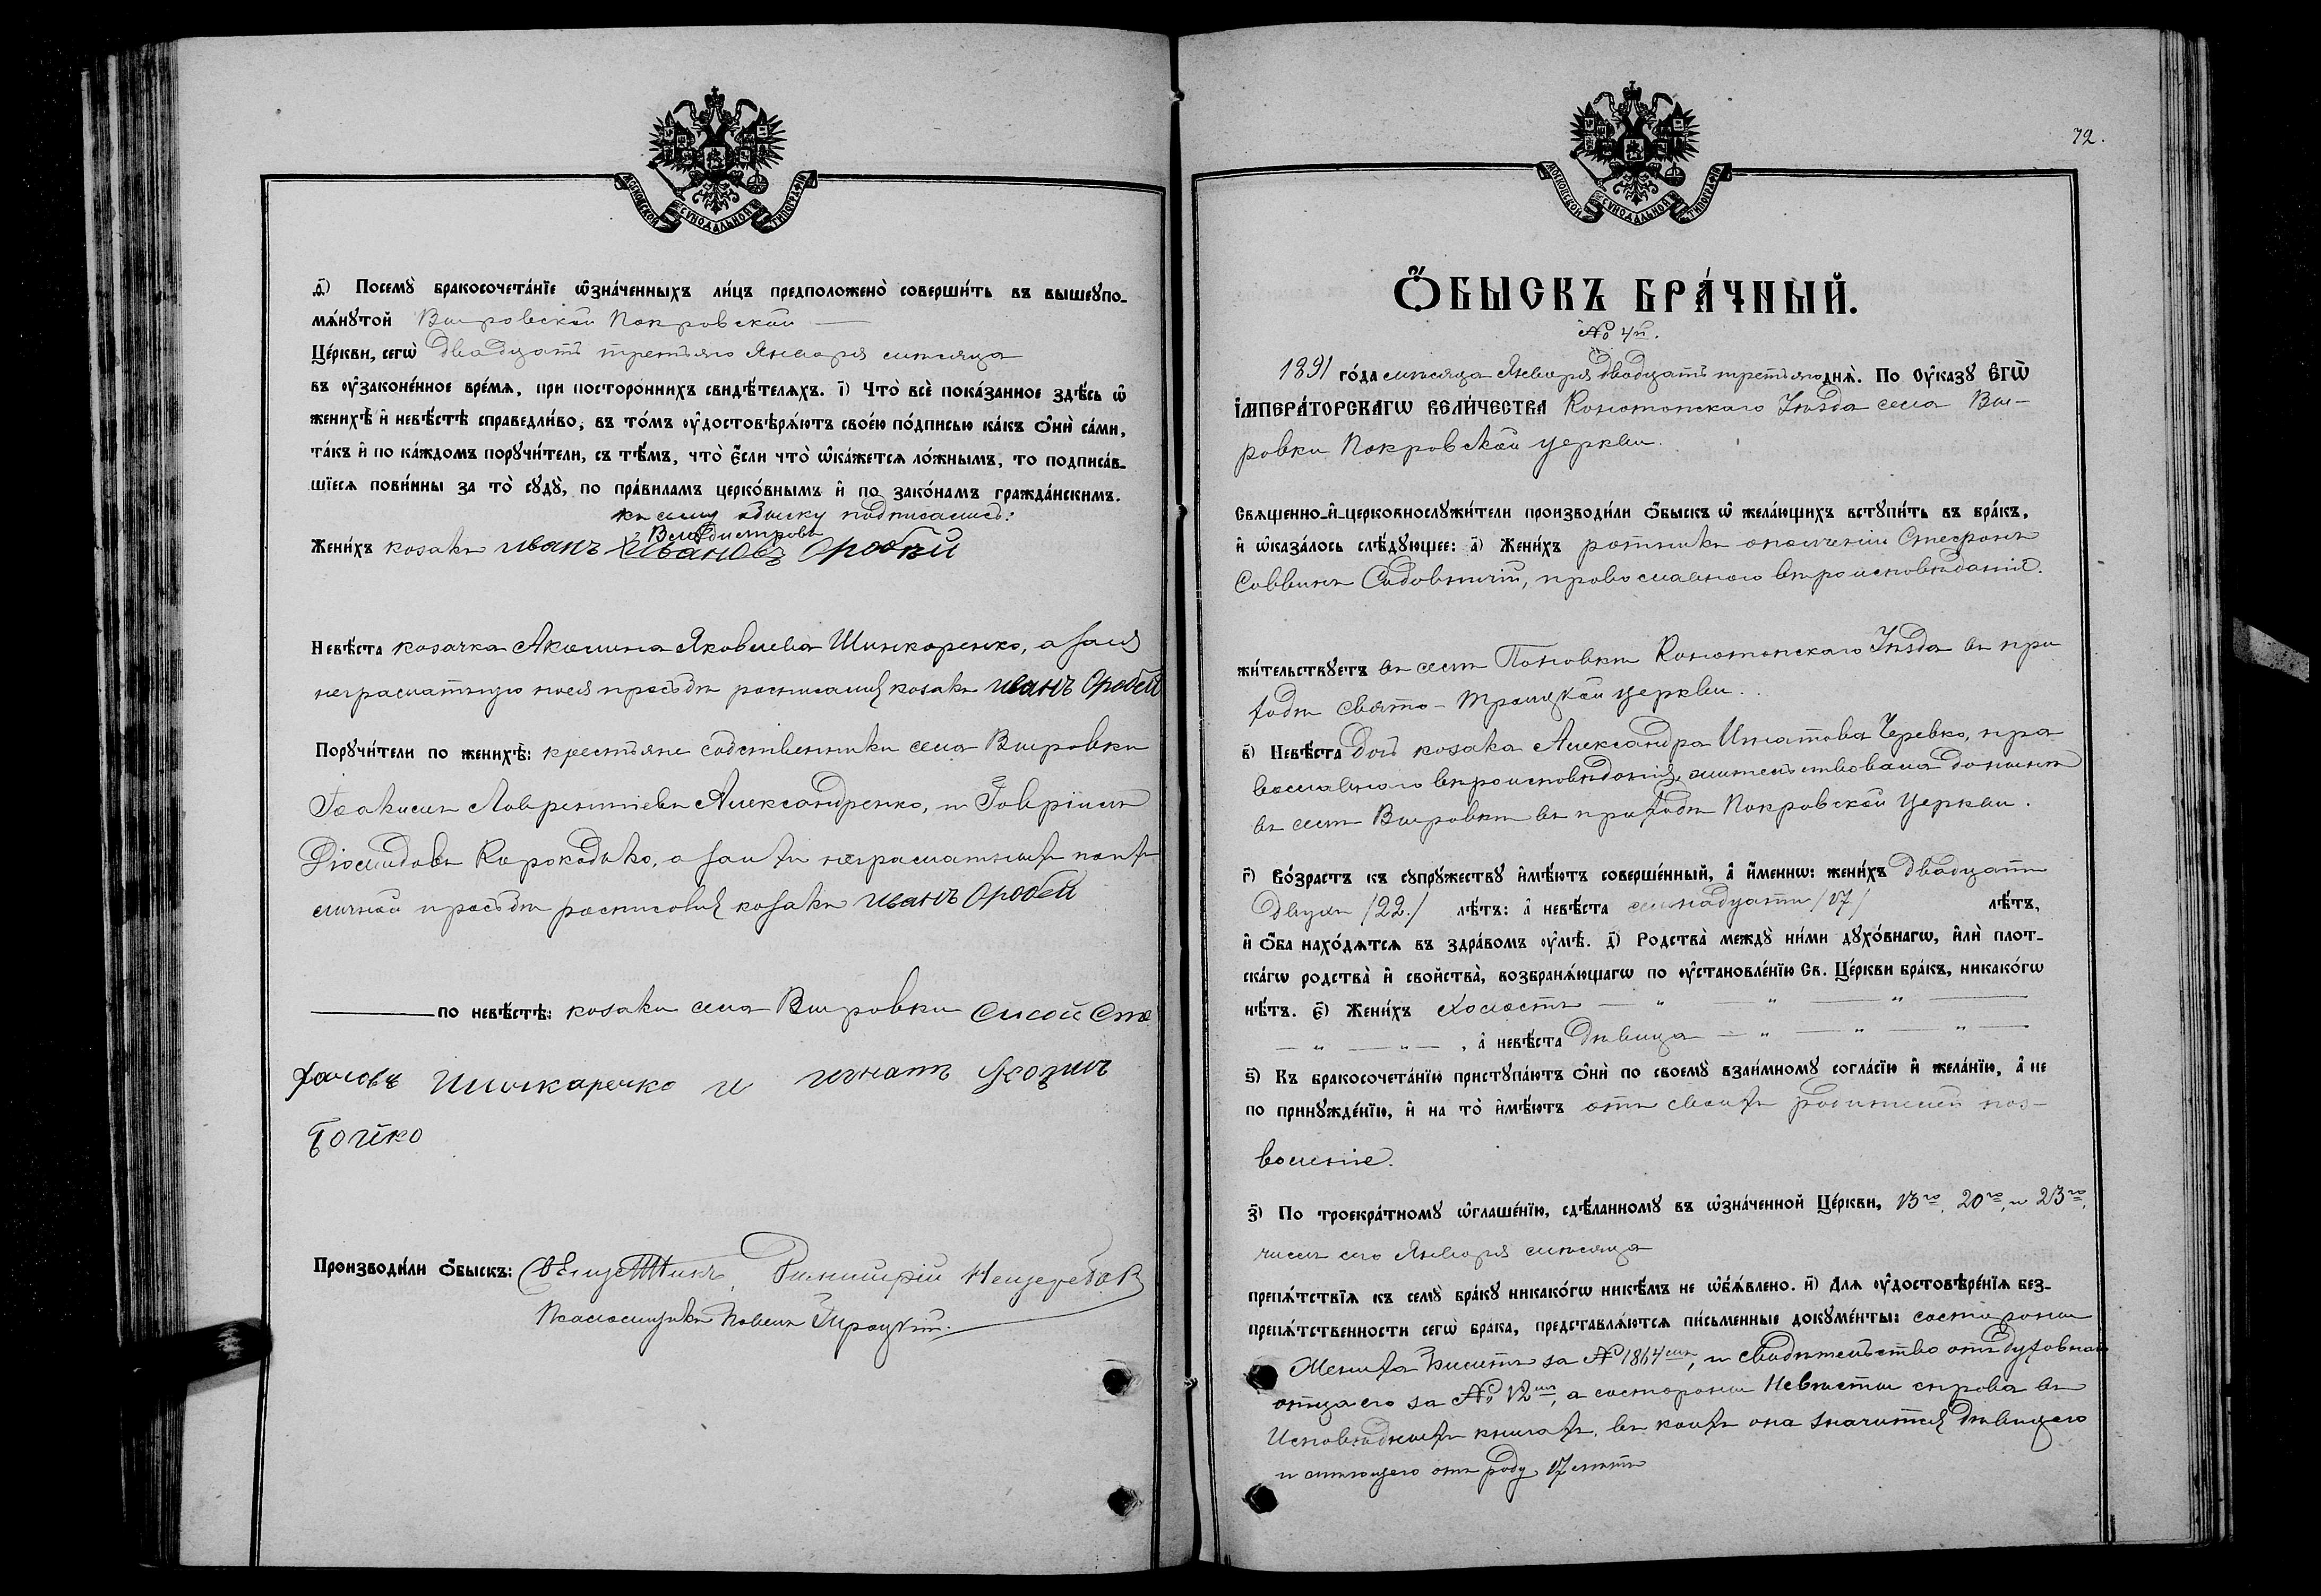 МОСКОВСКОЙ СѴНОДАЛЬНОЙ ТИПОГРАФІИ
ѳ҃) Посемꙋ̀ бракосочета́нїе ѡ҆зна́ченныхъ ли́цъ предположено̀ соверши́ть въ вышеꙋпо-
мѧ́нꙋтой Вировской Покровской —
Це́ркви, сегѡ̀ двадцать третьяго Января мѣсяца
въ ᲂу҆законе́нное вре́мѧ, при посторо́ннихъ свидѣ́телѧхъ. і҃) Что̀ всѐ пока́занное здѣ́сь ѡ҆
женихѣ̀ и҆ невѣ́стѣ справедли́во, въ то́мъ ᲂу҆достовѣрѧ́ютъ свое́ю по́дписью ка́къ ѻ҆нѝ са́ми,
та́къ и҆ по ка́ждомъ порꙋчи́тели, съ тѣ́мъ, что̀ є҆́сли что̀ ѡ҆ка́жетсѧ ло́жнымъ, то подписа́в-
шїесѧ пови́нны за то̀ сꙋдꙋ̀, по пра́виламъ церко́внымъ и҆ по зако́намъ гражда́нскимъ.
къ сему обыску подписались:
Жени́хъ козакъ иванъ Ивановъ Оробей
Невѣ́ста козачка Акилина Яковлева Шинкаренко, а за нея
неграматную по ея прозьбѣ росписался козакъ иванъ Оробей
Порꙋчи́тели по женихѣ̀: крестьяне собственники села Вировки
Лаврентіевъ Александренко, и Гавріилъ
Діомидовъ а за нихъ неграматныхъ по ихъ
личной прозьбѣ росписовался козакъ иванъ Оробей
по невѣ́стѣ: козаки села Вировки Сисой Сте
фановъ Шинкаренко и игнатъ
Бойко
Производи́ли ѻ҆́быскъ: Священникъ
Псаломщикъ Павелъ
72.
МОСКОВСКОЙ СѴНОДАЛЬНОЙ ТИПОГРАФІИ
Ѻ҆́БЫСКЪ БРА́ЧНЫЙ.
№ 4й.
1891 го́да мѣсяца Января двадцать третьяго днѧ̀. По ᲂу҆ка́зꙋ Є҆ГѠ̀
І҆МПЕРА́ТОРСКАГѠ ВЕЛИ́ЧЕСТВА Конотопскаго Уѣзда села Ви-
ровки Покровской церкви.
Свѧще́нно-и҆-церковнослꙋжи́тели производи́ли ѻ҆́быскъ ѡ҆ жела́ющихъ встꙋпи́ть въ бра́къ,
и҆ ѡ҆каза́лось слѣ́дꙋющее: а҃) Жени́хъ ратникъ ополченія Стефанъ
Саввинъ Садовничій, православнаго вѣроисповѣданія.
жи́тельствꙋетъ въ селѣ Поповкѣ Конотопскаго Уѣзда въ при
ходѣ Свято-Троицкой церкви.
в҃) Невѣ́ста дочь козака Александра Игнатова Черевко, пра
вославнаго вѣроисповѣданія, жительствовала донынѣ
въ селѣ Вировкѣ въ приходѣ Покровской Церкви.
г҃) Во́зрастъ къ сꙋпрꙋ́жествꙋ и҆мѣ́ютъ соверше́нный, а҆ и҆́меннѡ: жени́хъ двадцати
двухъ /22./ лѣ́тъ: а҆ невѣ́ста семнадцати /17/ лѣ́тъ,
и҆ ѻ҆́ба нахо́дѧтсѧ въ здра́вомъ ᲂу҆мѣ̀. д҃) Родства̀ междꙋ̀ ни́ми дꙋхо́внагѡ, и҆лѝ плот-
ска́гѡ родства̀ и҆ сво́йства̀, возбранѧ́ющагѡ по ᲂу҆становле́нїю Св. Це́ркви бра́къ, никако́гѡ
нѣ́тъ. є҃) Жени́хъ холостъ — " — " — " —
— " — " — , а҆ невѣ́ста дѣвица — " — " — " —
ѕ҃) Къ бракосочета́нїю пристꙋпа́ютъ ѻ҆нѝ по своемꙋ̀ взаи́мномꙋ согла́сїю и҆ жела́нїю, а҆ не
по принꙋжде́нїю, и҆ на то̀ и҆мѣ́ютъ отъ своихъ родителей поз-
воленіе.
з҃) По троекра́тномꙋ ѡ҆глаше́нїю, сдѣ́ланномꙋ въ ѡ҆зна́ченной Це́ркви, 13го, 20го, и 23го,
чиселъ сего Января мѣсяца
препѧ́тствїѧ къ семꙋ̀ бра́кꙋ никако́гѡ никѣ́мъ не ѡ҆б̾ѧ́влено. и҃) Длѧ ᲂу҆достовѣре́нїѧ без-
препѧ́тственности сегѡ̀ бра́ка, представлѧ́ютсѧ пи́сьменные докꙋме́нты: состороны
Жениха Билетъ за № 1864мъ, и свидѣтельство отъ духовнаго
отца его за № 12мъ, а состороны Невѣсты справа въ
Исповѣдныхъ книгахъ, въ коихъ она значится дѣвицею
и имѣющею отъ роду 17 лѣтъ